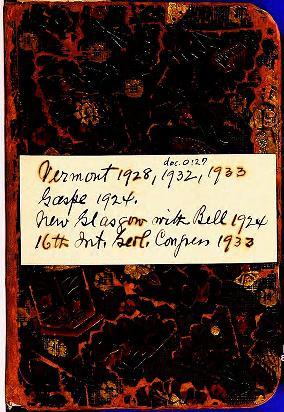 doc. 0127
Vermont 1928, 1932, 1933
Gaspe 1924.
New Glasgow with Bell 1924
16th Int. Geol. Congress 1933